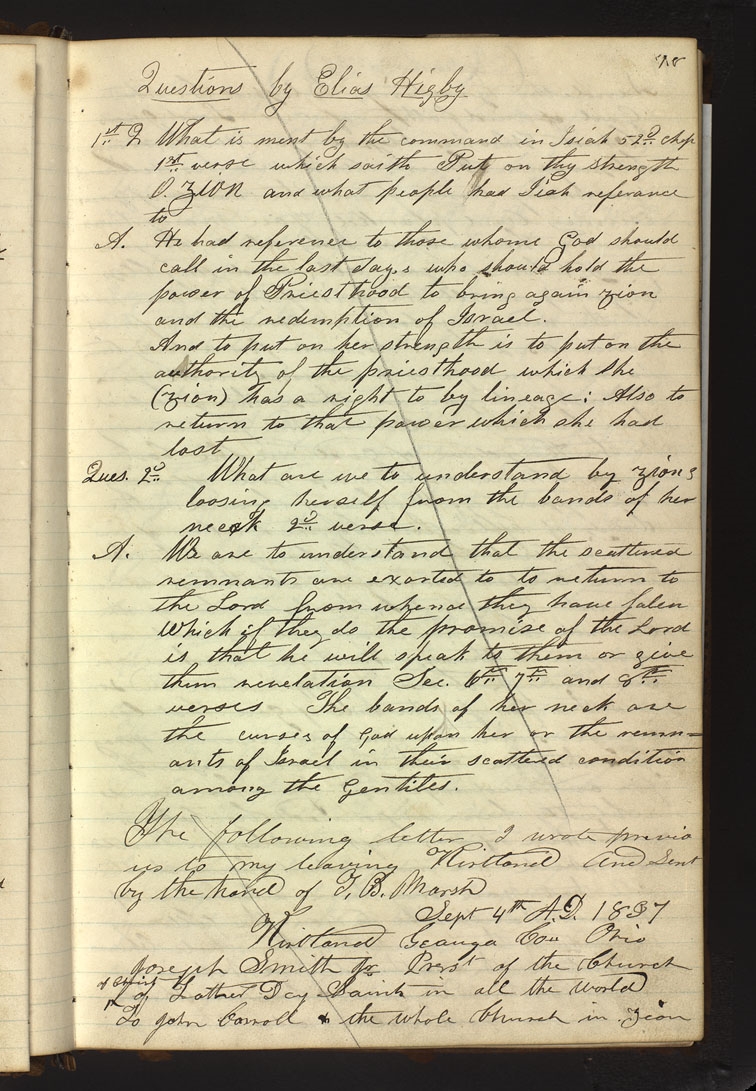 18
Questions by Elias Higby
1st Q What is ment by the command in Isiah 52d chap
1st verse which saith Put on thy strength
O Zion and what people had I[s]iah referance
to
A. He had reference to those whome God should
call in the last day,s who should hold the
power of Priesthood to bring again zion
and the redemption of Israel.
And to put on her strength is to put on the
authority of the priesthood which she
(zion) has a right to by lineage: Also to
return to that power which she had
lost
Ques. 2d What are we to understand by zions
loosing herself from the bands of her
neck 2d verse.
A. We are to understand that the scattered
remnants are exorted to to return to
the Lord from whence they have falen
which if they do the promise of the Lord
is that he will speak to them or give
them revelation See. 6th 7th and 8th
verses The bands of her neck are
the curses of God upon her or the remn=
ants of Israel in their scattered condition
among the Gentiles.
The following letter I wrote previo
us to my leaving Kirtland and sent
by the hand of T. B. Marsh
Sept 4th A.D. 1837
Kirtland Geauga Cou Ohio
Joseph Smith Jr Prest of the Church
of Christ
of Latter Day Saints in all the world
To John Corroll & the whole Church in zion